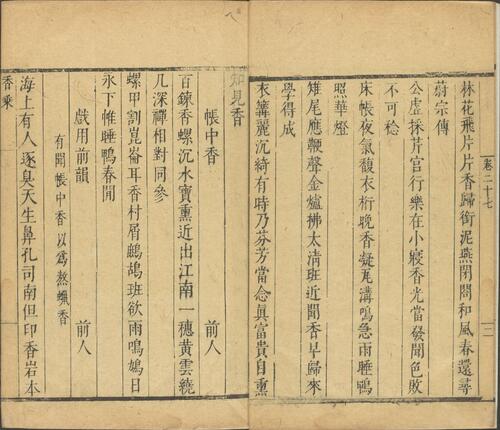 林花飛片片香歸銜泥燕閉閤和風春還尋
蔚宗傳
公虛採芹宮行樂在小寢香光當發聞色敗
不可稔
床帳夜氣馥衣桁晚香凝瓦溝鳴急雨睡鴨
照華燈
雉尾應鞭聲金爐拂太清班近聞香早歸來
學得成
衣篝麗沉綺有時乃芬芳當念真富貴自熏
知見香
帳中香 前人
百鍊香螺沉水寶熏近出江南一穗黃雲繞
几深禪相對同參
螺甲割崑崙耳香材屑鷓鴣班欲雨鳴鳩日
永下帷睡鴨春閒
戲用前韻 前人
有聞帳中香以為熬蠟香
海上有人逐臭天生鼻孔司南但印香岩本
香乘
卷二十七